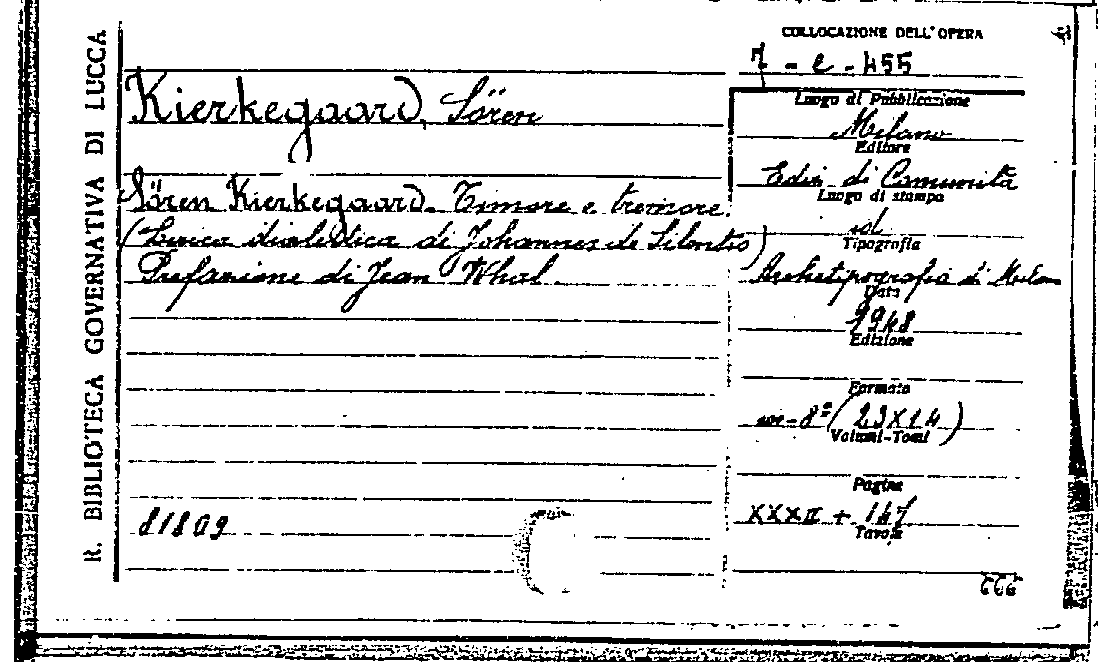 R. BIBLIOTECA GOVERNATIVA DI LUCCA
COLLOCAZIONE DELL'OPERA
7 - e - 455
Kierkegaard, Sören
Sören Kierkegaard. Timore e tremore.
(Lirica dialettica di Johannes de Silentio)
Prefazione di Jean Whal.
81809
Luogo di Pubblicazione
Milano
Editore
Ediz. di Comunità
Luogo di stampa
id
Tipografia
Archetipografia di Milano
Data
1948
Edizione
Formato
in-8º (23X14)
Volumi-Tomi
Pagine
XXXII + 147
Tavole